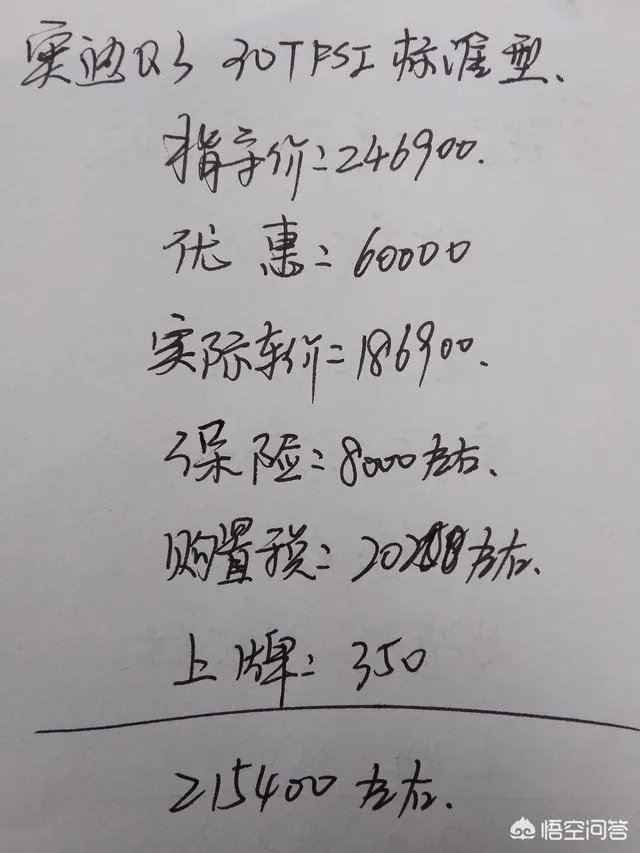 奥迪Q3 30TFSI 标准型.
指导价=246900.
优惠=60000
实际车价=186900.
保险=8000左右.
购置税=左右.
上牌=350
215400左右.
悟空问答